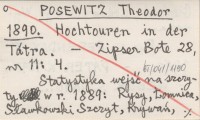 POSEWITZ Theodor
1890. Hochtouren in der
Tátra. — Zipser Bote 28,
nr 11: 4.
Statystyka wejść na szczy-
ty w r. 1889: Rysy, Łomnica,
Sławkowski Szczyt, Krywań,